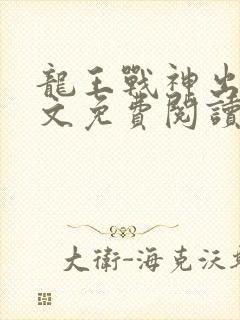 龍王戰神出
文免費閱讀
大衛-海克沃